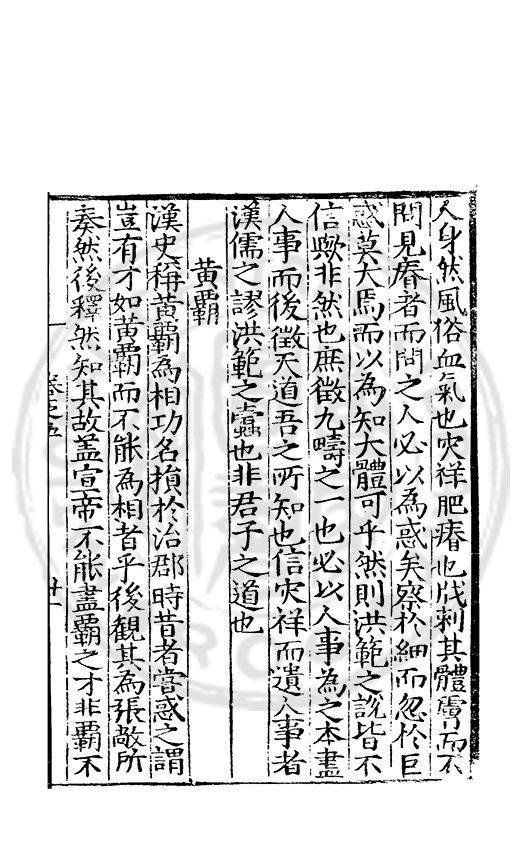 人身然風俗血氣也灾祥肥瘠也戕刺其體膚而不
問見瘠者而問之人必以為惑矣察扵細而忽扵巨
惑莫大焉而以為知大體可乎然則洪範之說皆不
信歟非然也庶徵九疇之一也必以人事為之本盡
人事而後徵天道吾之所知也信灾祥而遺人事者
漢儒之謬洪範之蠹也非君子之道也
黄霸
漢史稱黄霸為相功名損於治郡時昔者嘗惑之謂
豈有才如黄霸而不能為相者乎後觀其為張敞所
奏然後釋然知其故盖宣帝不能盡霸之才非霸不
卷之五
廿一